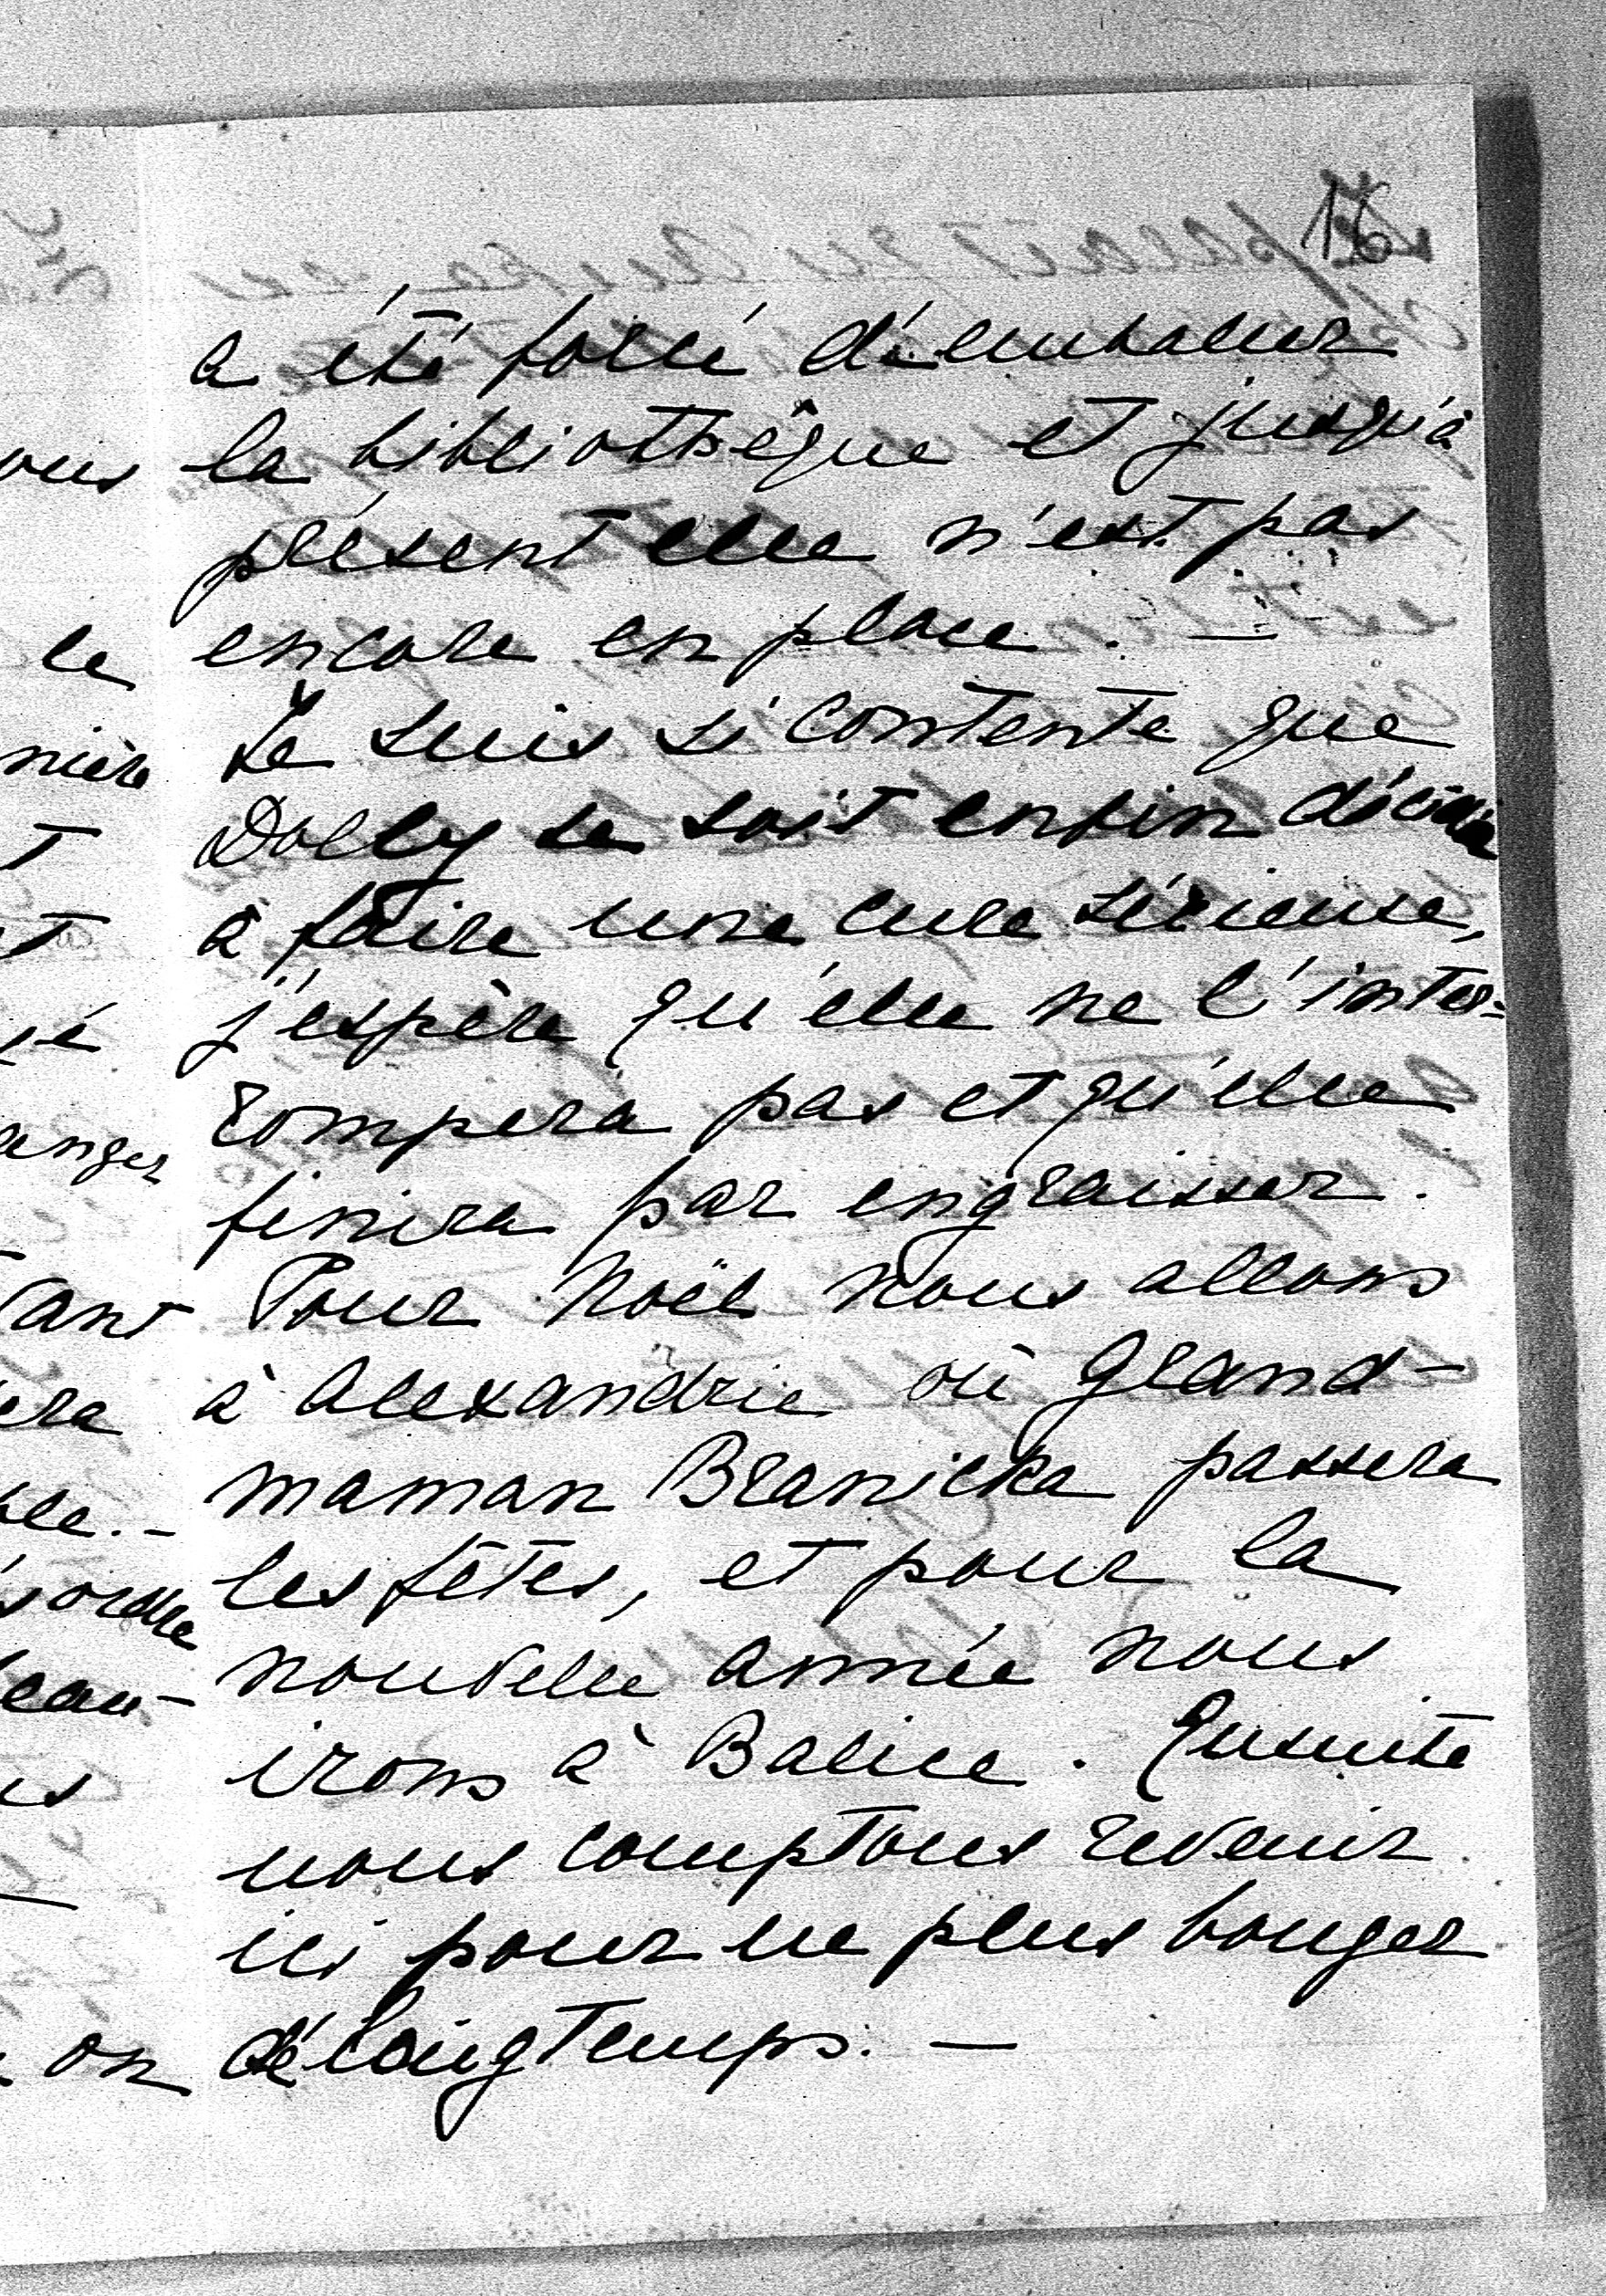 16
a été forcé d'emballer
la bibliothèque et jusqu'à
présent elle n'est pas
encore en place. —
Je suis si contente que
Dolly se soit enfin décidée
à faire une cure sérieuse,
j'espère qu'elle ne l'inter-
rompera pas et qu'elle
finira par engraisser.
Pour Noël nous allons
à Alexandrie où Grand-
maman Branicka passera
les fêtes, et pour la
nouvelle année nous
irons à Balice. Ensuite
nous comptons revenir
ici pour ne plus bouger
de longtemps. —